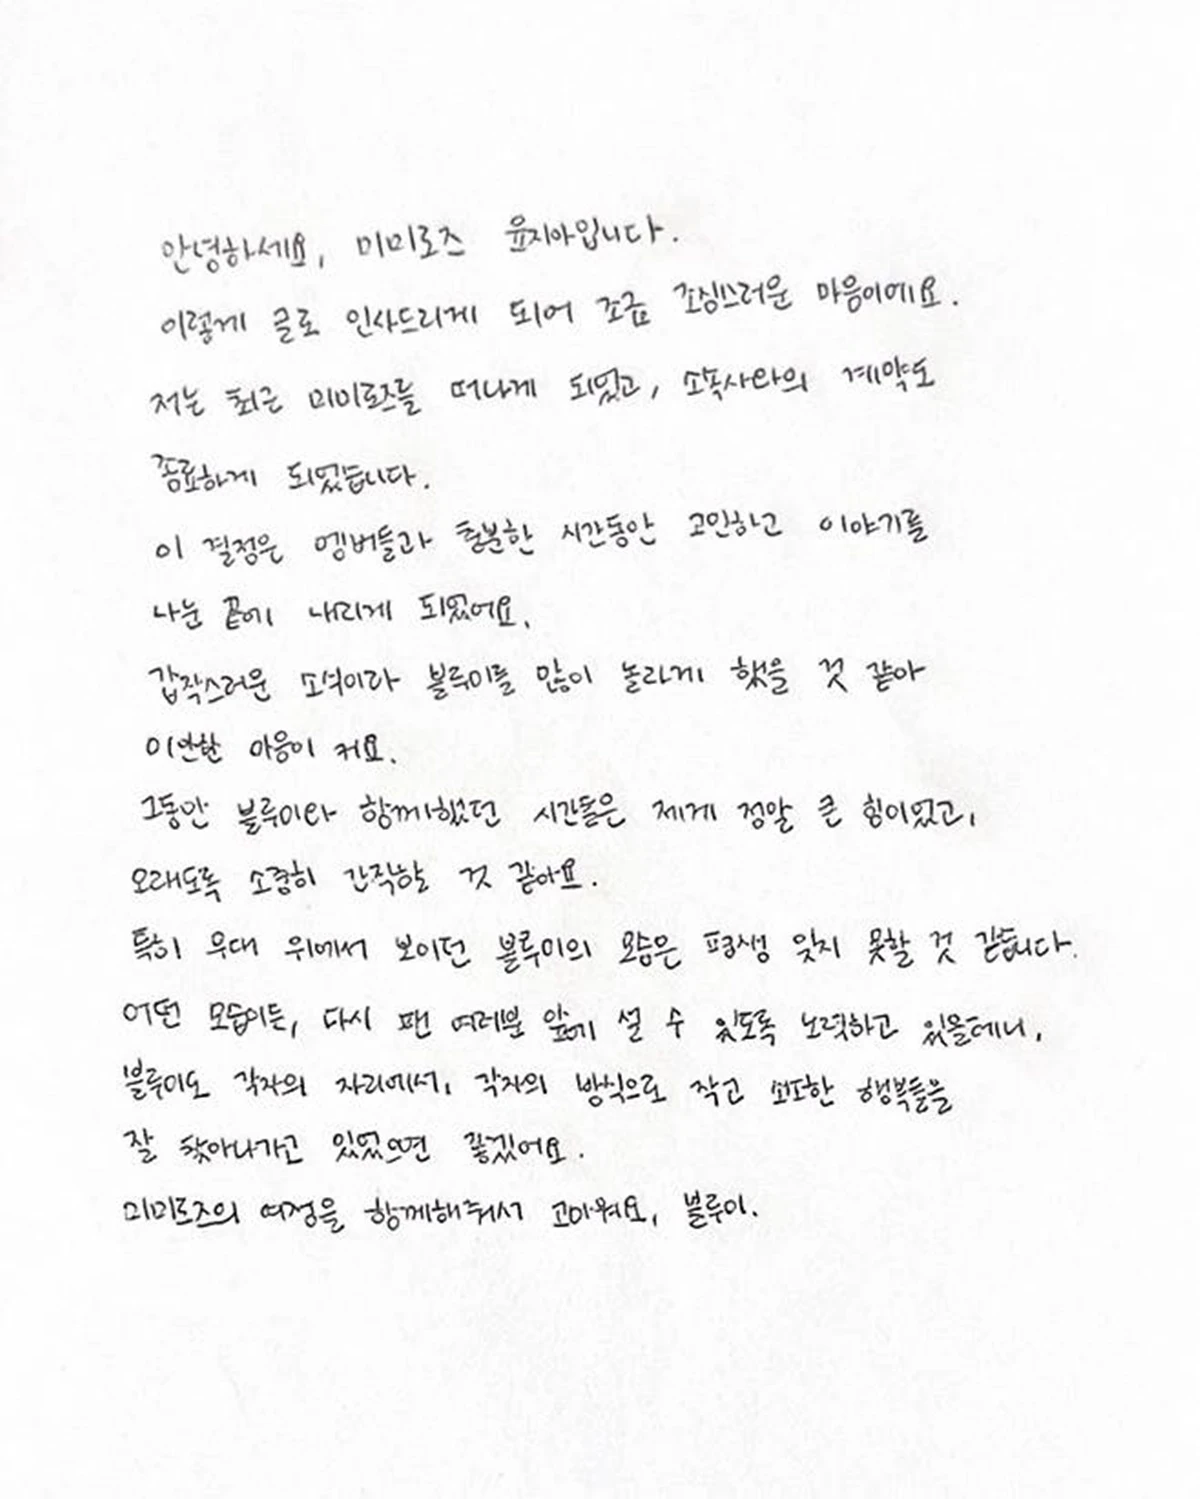 안녕하세요, 미미로즈 윤지아입니다.
이렇게 글로 인사드리게 되어 조금 조심스러운 마음이에요.
저는 최근 미미로즈를 떠나게 되었고, 소속사와의 계약도
종료하게 되었습니다.
이 결정은 멤버들과 충분한 시간동안 고민하고 이야기를
나눈 끝에 내리게 되었어요.
갑작스러운 소식이라 블루이를 많이 놀라게 했을 것 같아
미안한 마음이 커요.
그동안 블루이와 함께했던 시간들은 제게 정말 큰 힘이었고,
오래도록 소중히 간직할 것 같아요.
특히 무대 위에서 보이던 블루이의 모습은 평생 잊지 못할 것 같습니다.
어떤 모습이든, 다시 팬 여러분 앞에 설 수 있도록 노력하고 있을테니,
블루이도 각자의 자리에서, 각자의 방식으로 작고 소중한 행복들을
잘 찾아나가고 있었으면 좋겠어요.
미미로즈의 여정을 함께해줘서 고마워요, 블루이.